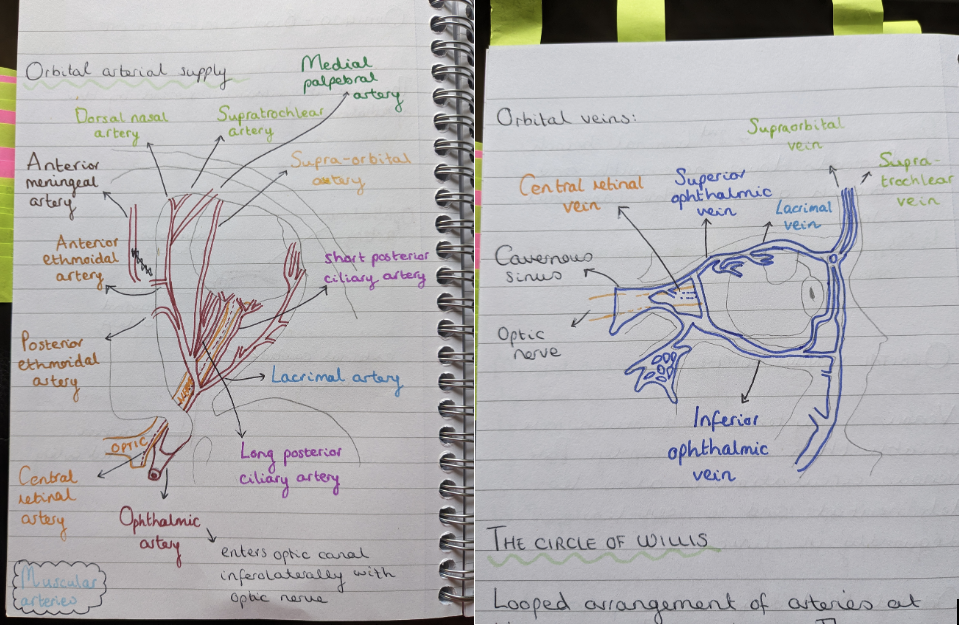 Orbital arterial supply
Medial
palpebral
artery
Dorsal nasal
artery
Supratrochlear
artery
Anterior
meningeal
artery
Supra-orbital
artery
Anterior
ethmoidal
artery
short posterior
ciliary artery
Posterior
ethmoidal
artery
Lacrimal artery
OPTIC
Long posterior
ciliary artery
Central
retinal
artery
Ophthalmic
artery
enters optic canal
inferolaterally with
optic nerve
Muscular
arteries
Orbital veins:
Supraorbital
vein
Supra-
trochlear
vein
Central retinal
vein
Superior
ophthalmic
vein
Lacrimal
vein
Cavernous
sinus
Optic
nerve
Inferior
ophthalmic
vein
THE CIRCLE OF WILLIS
Looped arrangement of arteries at